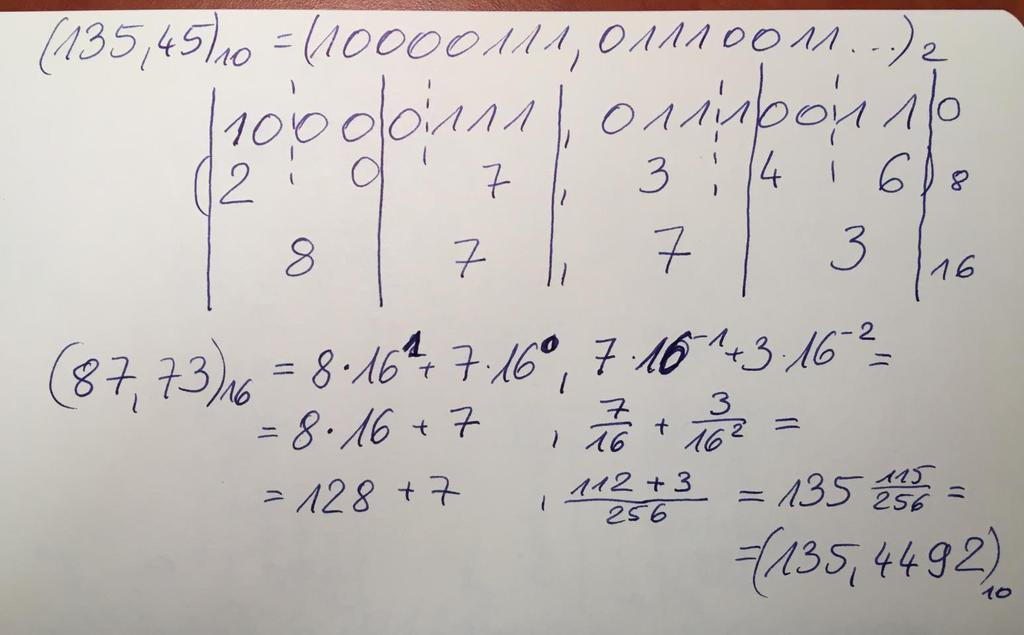 (135,45)10 = (10000111,01110011...)2
1000 0111 , 0111 0011 0
(2 0 7 , 3 4 6)8
8 7 , 7 3 16
(87,73)16 = 8·16¹ + 7·16⁰ , 7·16⁻¹ + 3·16⁻² =
= 8·16 + 7 , 7/16 + 3/16² =
= 128 + 7 , (112 + 3)/256 = 135 115/256 =
=(135,4492)10